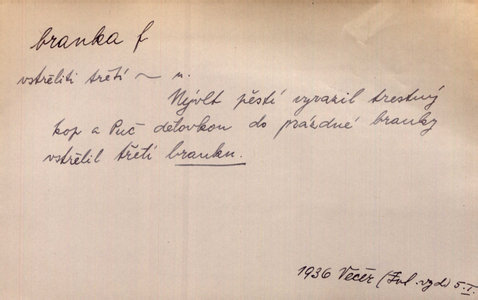 branka f
vstřeliti třetí ~ u.
Nývlt pěstí vyrazil trestný
kop a Puč dělovkou do prázdné branky
vstřelil třetí branku.
1936 Večer 5.I.